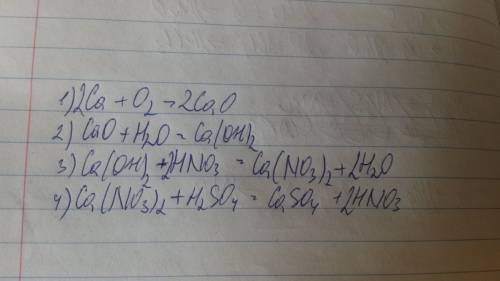 1) 2Ca + O₂ = 2CaO
2) CaO + H₂O = Ca(OH)₂
3) Ca(OH)₂ + 2HNO₃ = Ca(NO₃)₂ + 2H₂O
4) Ca(NO₃)₂ + H₂SO₄ = CaSO₄ + 2HNO₃